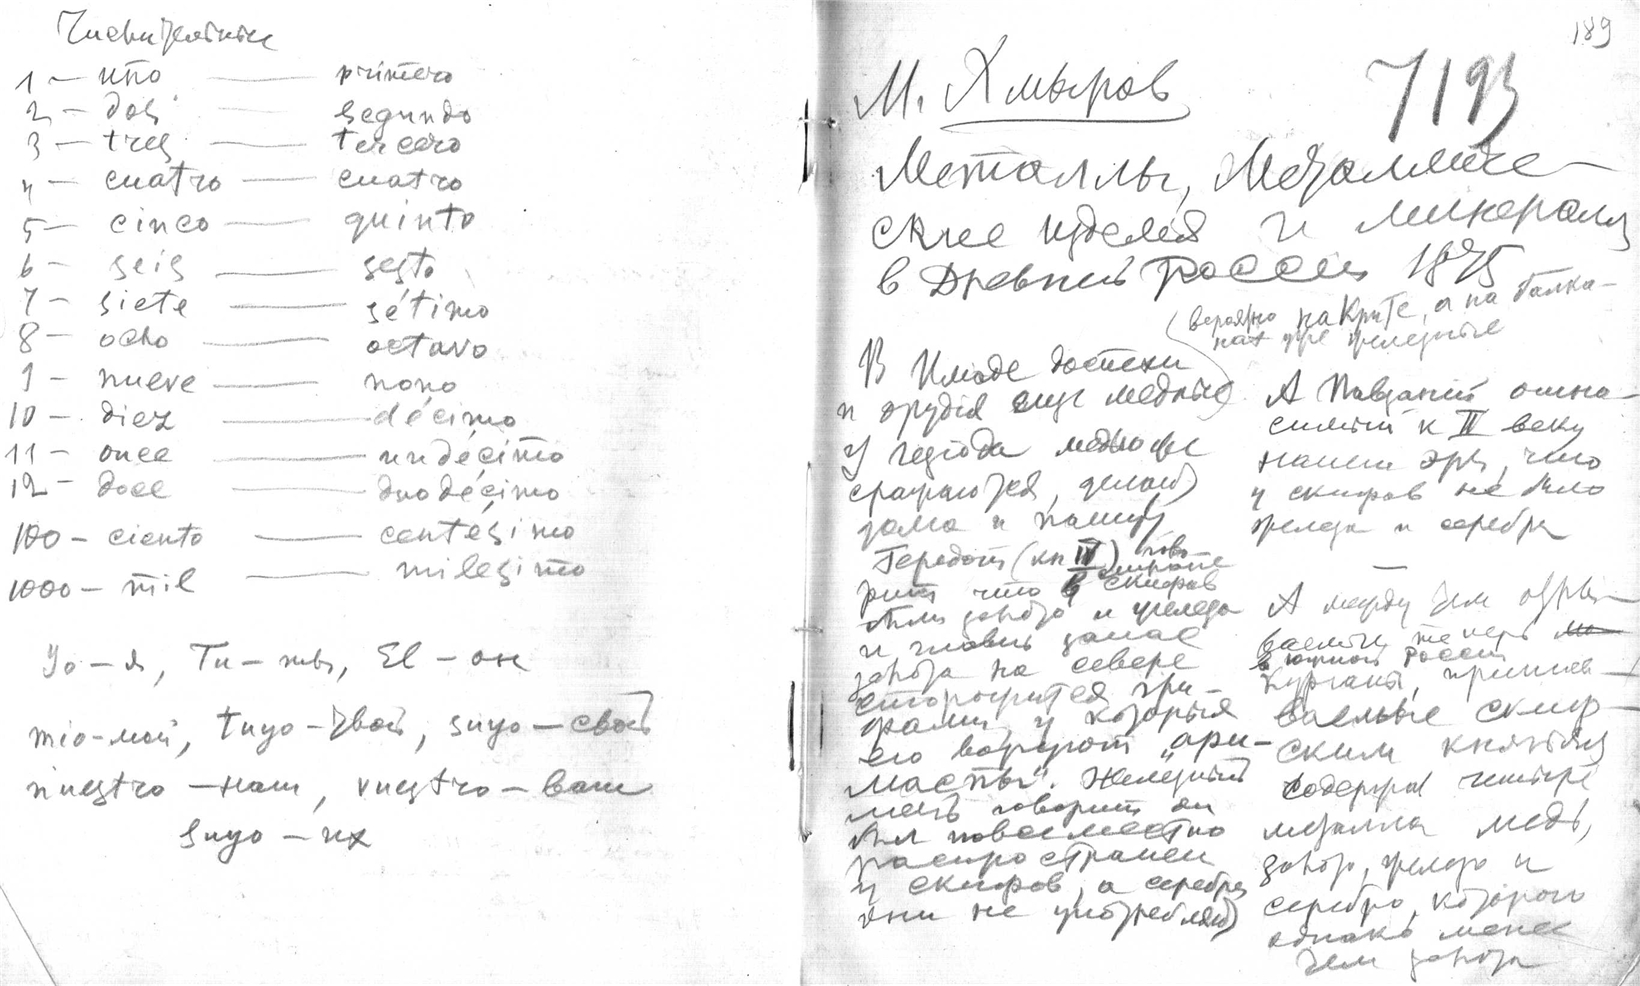 Числительные
1 — uno — primero
2 — dos — segundo
3 — tres — tercero
4 — cuatro — cuatro
5 — cinco — quinto
6 — seis — sesto
7 — siete — sétimo
8 — ocho — octavo
9 — nueve — nono
10 — diez — décimo
11 — once — undécimo
12 — doce — duodécimo
100 — ciento — centésimo
1000 — mil — milesimo
Yo — я, Tu — ты, El — он
mio — мой, tuyo — твой, suyo — свой
nuestro — наш, vuestro — ваш
suyo — их
189
М. Хмыров
7193
Металлы, Металличе-
ские изделия и минералы
в Древней России 1875
(вероятно на Крите, а на Балка-
нах уже железные
В Илиаде доспехи
и орудия еще медные)
У Гезиода медью
сражаются, делают
дома и пашут
Геродот (кн IV) гово
рит что у скифов
были золото и железо
и главн запас
золота на севере
сторожится гри-
фами, у которых
его воруют "ари-
маспы". Железный
меч говорит он
был повсеместно
распространен
у скифов, а серебра
они не употребляют)
А Павзаний отно-
симый к II веку
нашей эры, что
у скифов не было
железа и серебра
А между тем откры-
ваемые теперь
в южной России
курганы, приписы-
ваемые скиф-
ским князьям
содержат четыре
металла медь,
золото, железо и
серебро, которого
однако менее
чем золота